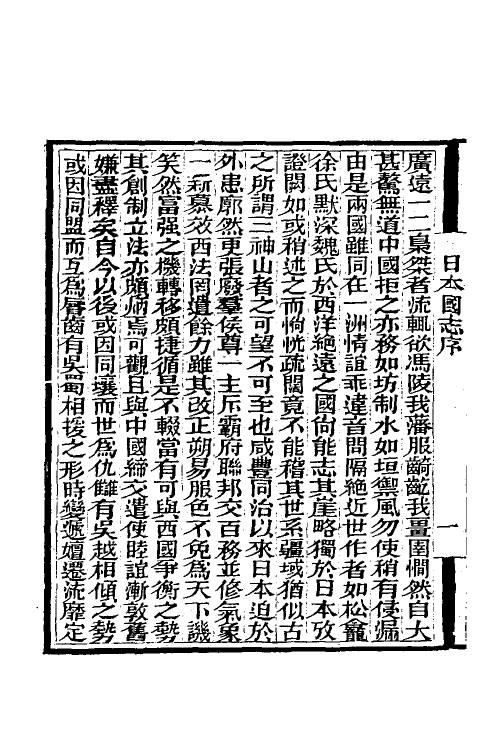 日本國志序
一
廣遠一二梟桀者流輒欲馮陵我藩服齮齕我畺圉憪然自大
甚驁無道中國拒之亦務如坊制水如垣禦風勿使稍有侵漏
由是兩國雖同在一洲情誼乖違音問隔絕近世作者如松龕
徐氏默深魏氏於西洋絕遠之國尙能志其崖略獨於日本攷
證闕如或稍述之而惝恍疏闊竟不能稽其世系疆域猶似古
之所謂三神山者之可望不可至也咸豐同治以來日本迫於
外患廓然更張廢羣侯尊一主斥霸府聯邦交百務並修氣象
一新慕效西法罔遺餘力雖其改正朔易服色不免爲天下譏
笑然富强之機轉移頗捷循是不輟當有可與西國爭衡之勢
其創制立法亦頗炳焉可觀且與中國締交遣使睦誼漸敦舊
嫌盡釋矣自今以後或因同壤而世爲仇讎有吳越相傾之勢
或因同盟而互爲脣齒有吳蜀相援之形時變遞嬗遷流靡定